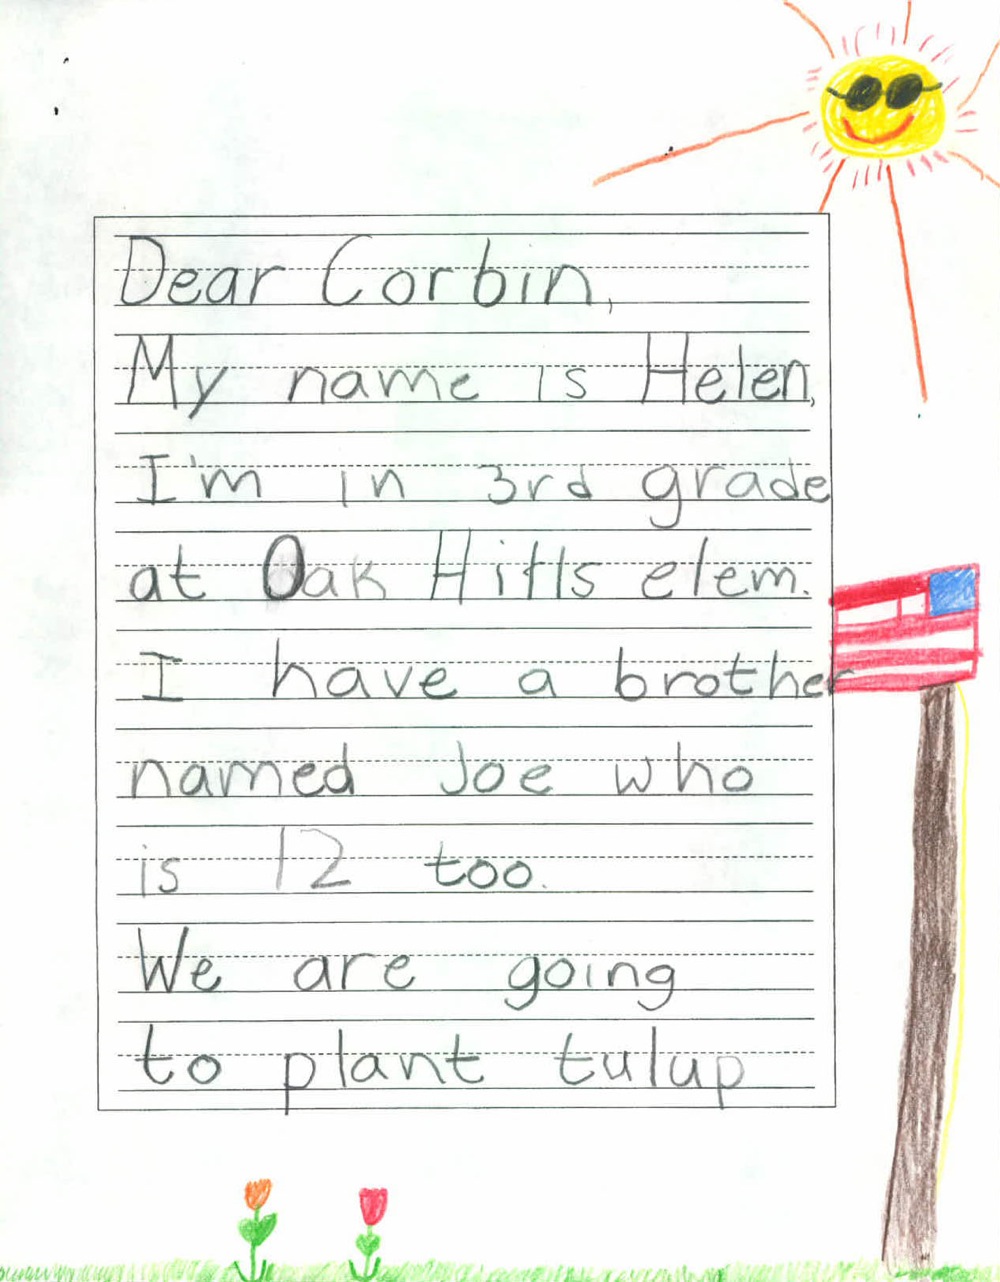 Dear Corbin,
My name is Helen,
I'm in 3rd grade
at Oak Hills elem.
I have a brother
named Joe who
is 12 too.
We are going
to plant tulup